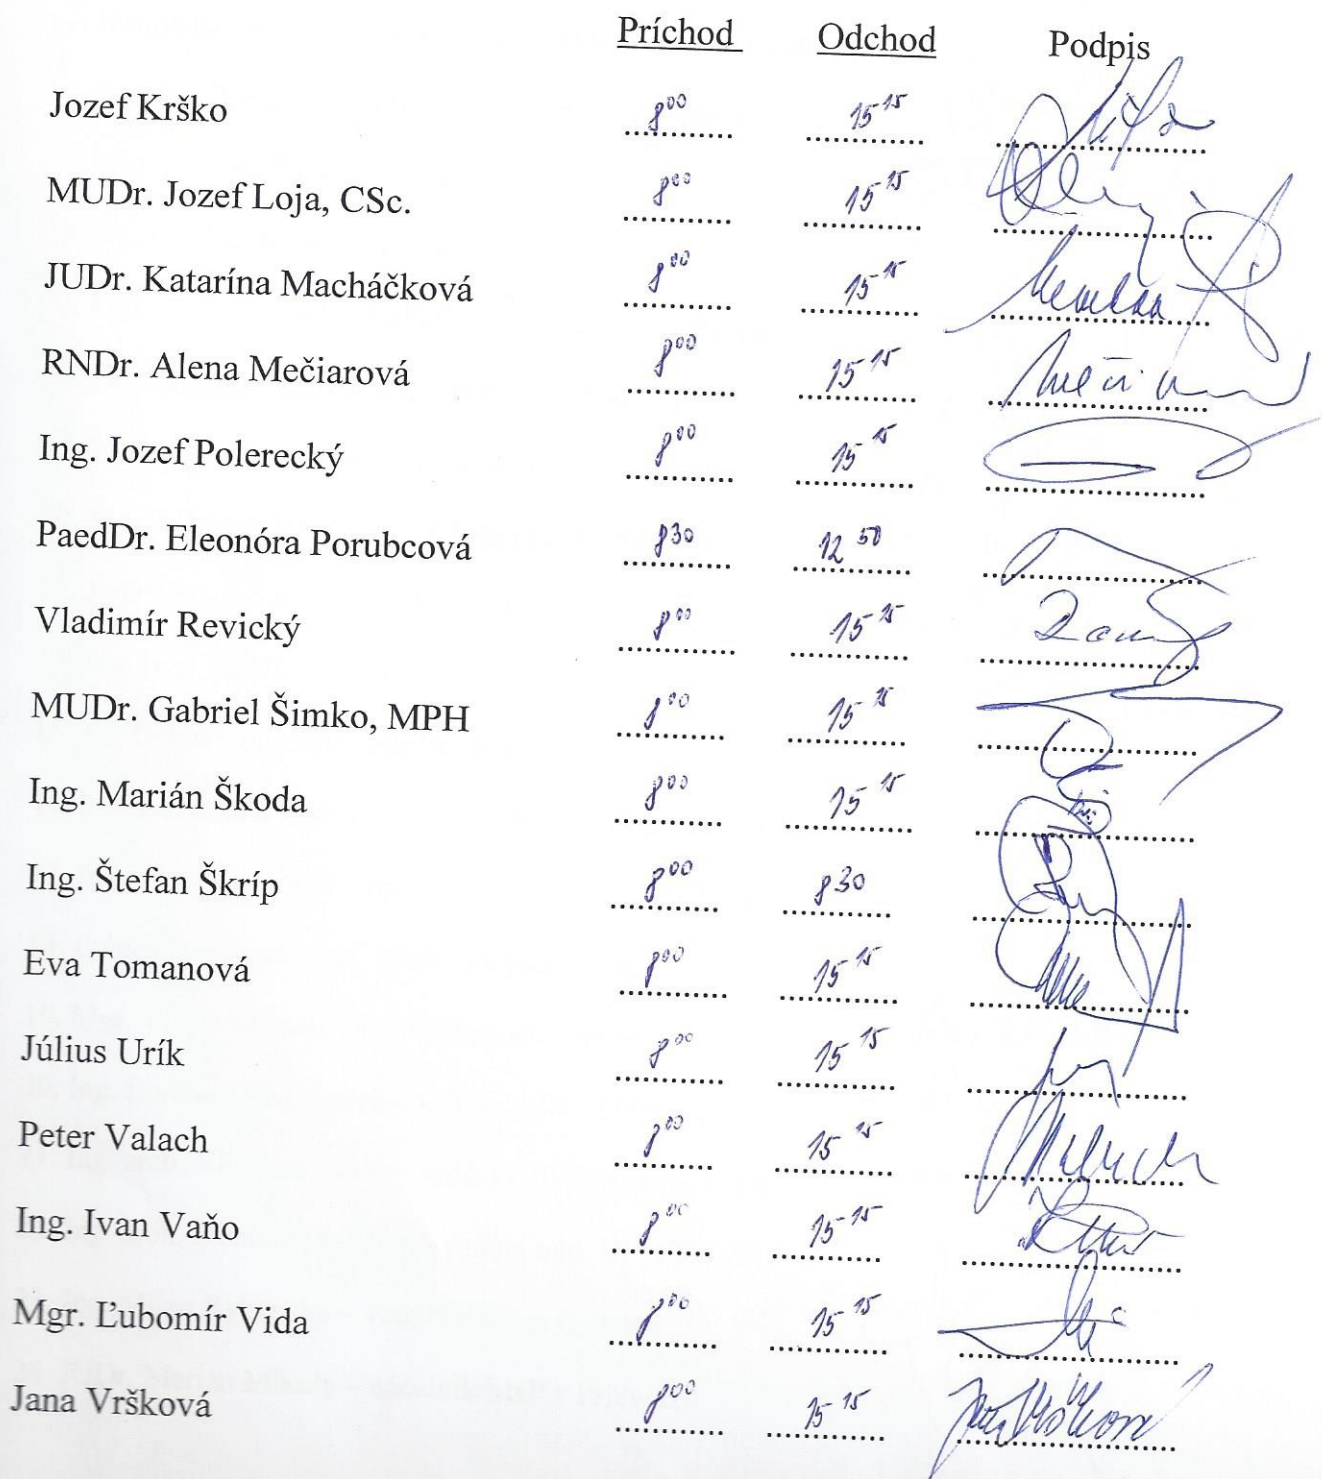 Príchod Odchod Podpis
Jozef Krško 8⁰⁰ 15¹⁵
MUDr. Jozef Loja, CSc. 8⁰⁰ 15¹⁵
JUDr. Katarína Macháčková 8⁰⁰ 15¹⁵
RNDr. Alena Mečiarová 8⁰⁰ 15¹⁵
Ing. Jozef Polerecký 8⁰⁰ 15¹⁵
PaedDr. Eleonóra Porubcová 8³⁰ 12⁵⁰
Vladimír Revický 8⁰⁰ 15¹⁵
MUDr. Gabriel Šimko, MPH 8⁰⁰ 15¹⁵
Ing. Marián Škoda 8⁰⁰ 15¹⁵
Ing. Štefan Škríp 8⁰⁰ 8³⁰
Eva Tomanová 8⁰⁰ 15¹⁵
Július Urík 8⁰⁰ 15¹⁵
Peter Valach 8⁰⁰ 15¹⁵
Ing. Ivan Vaňo 8⁰⁰ 15¹⁵
Mgr. Ľubomír Vida 8⁰⁰ 15¹⁵
Jana Vršková 8⁰⁰ 15¹⁵